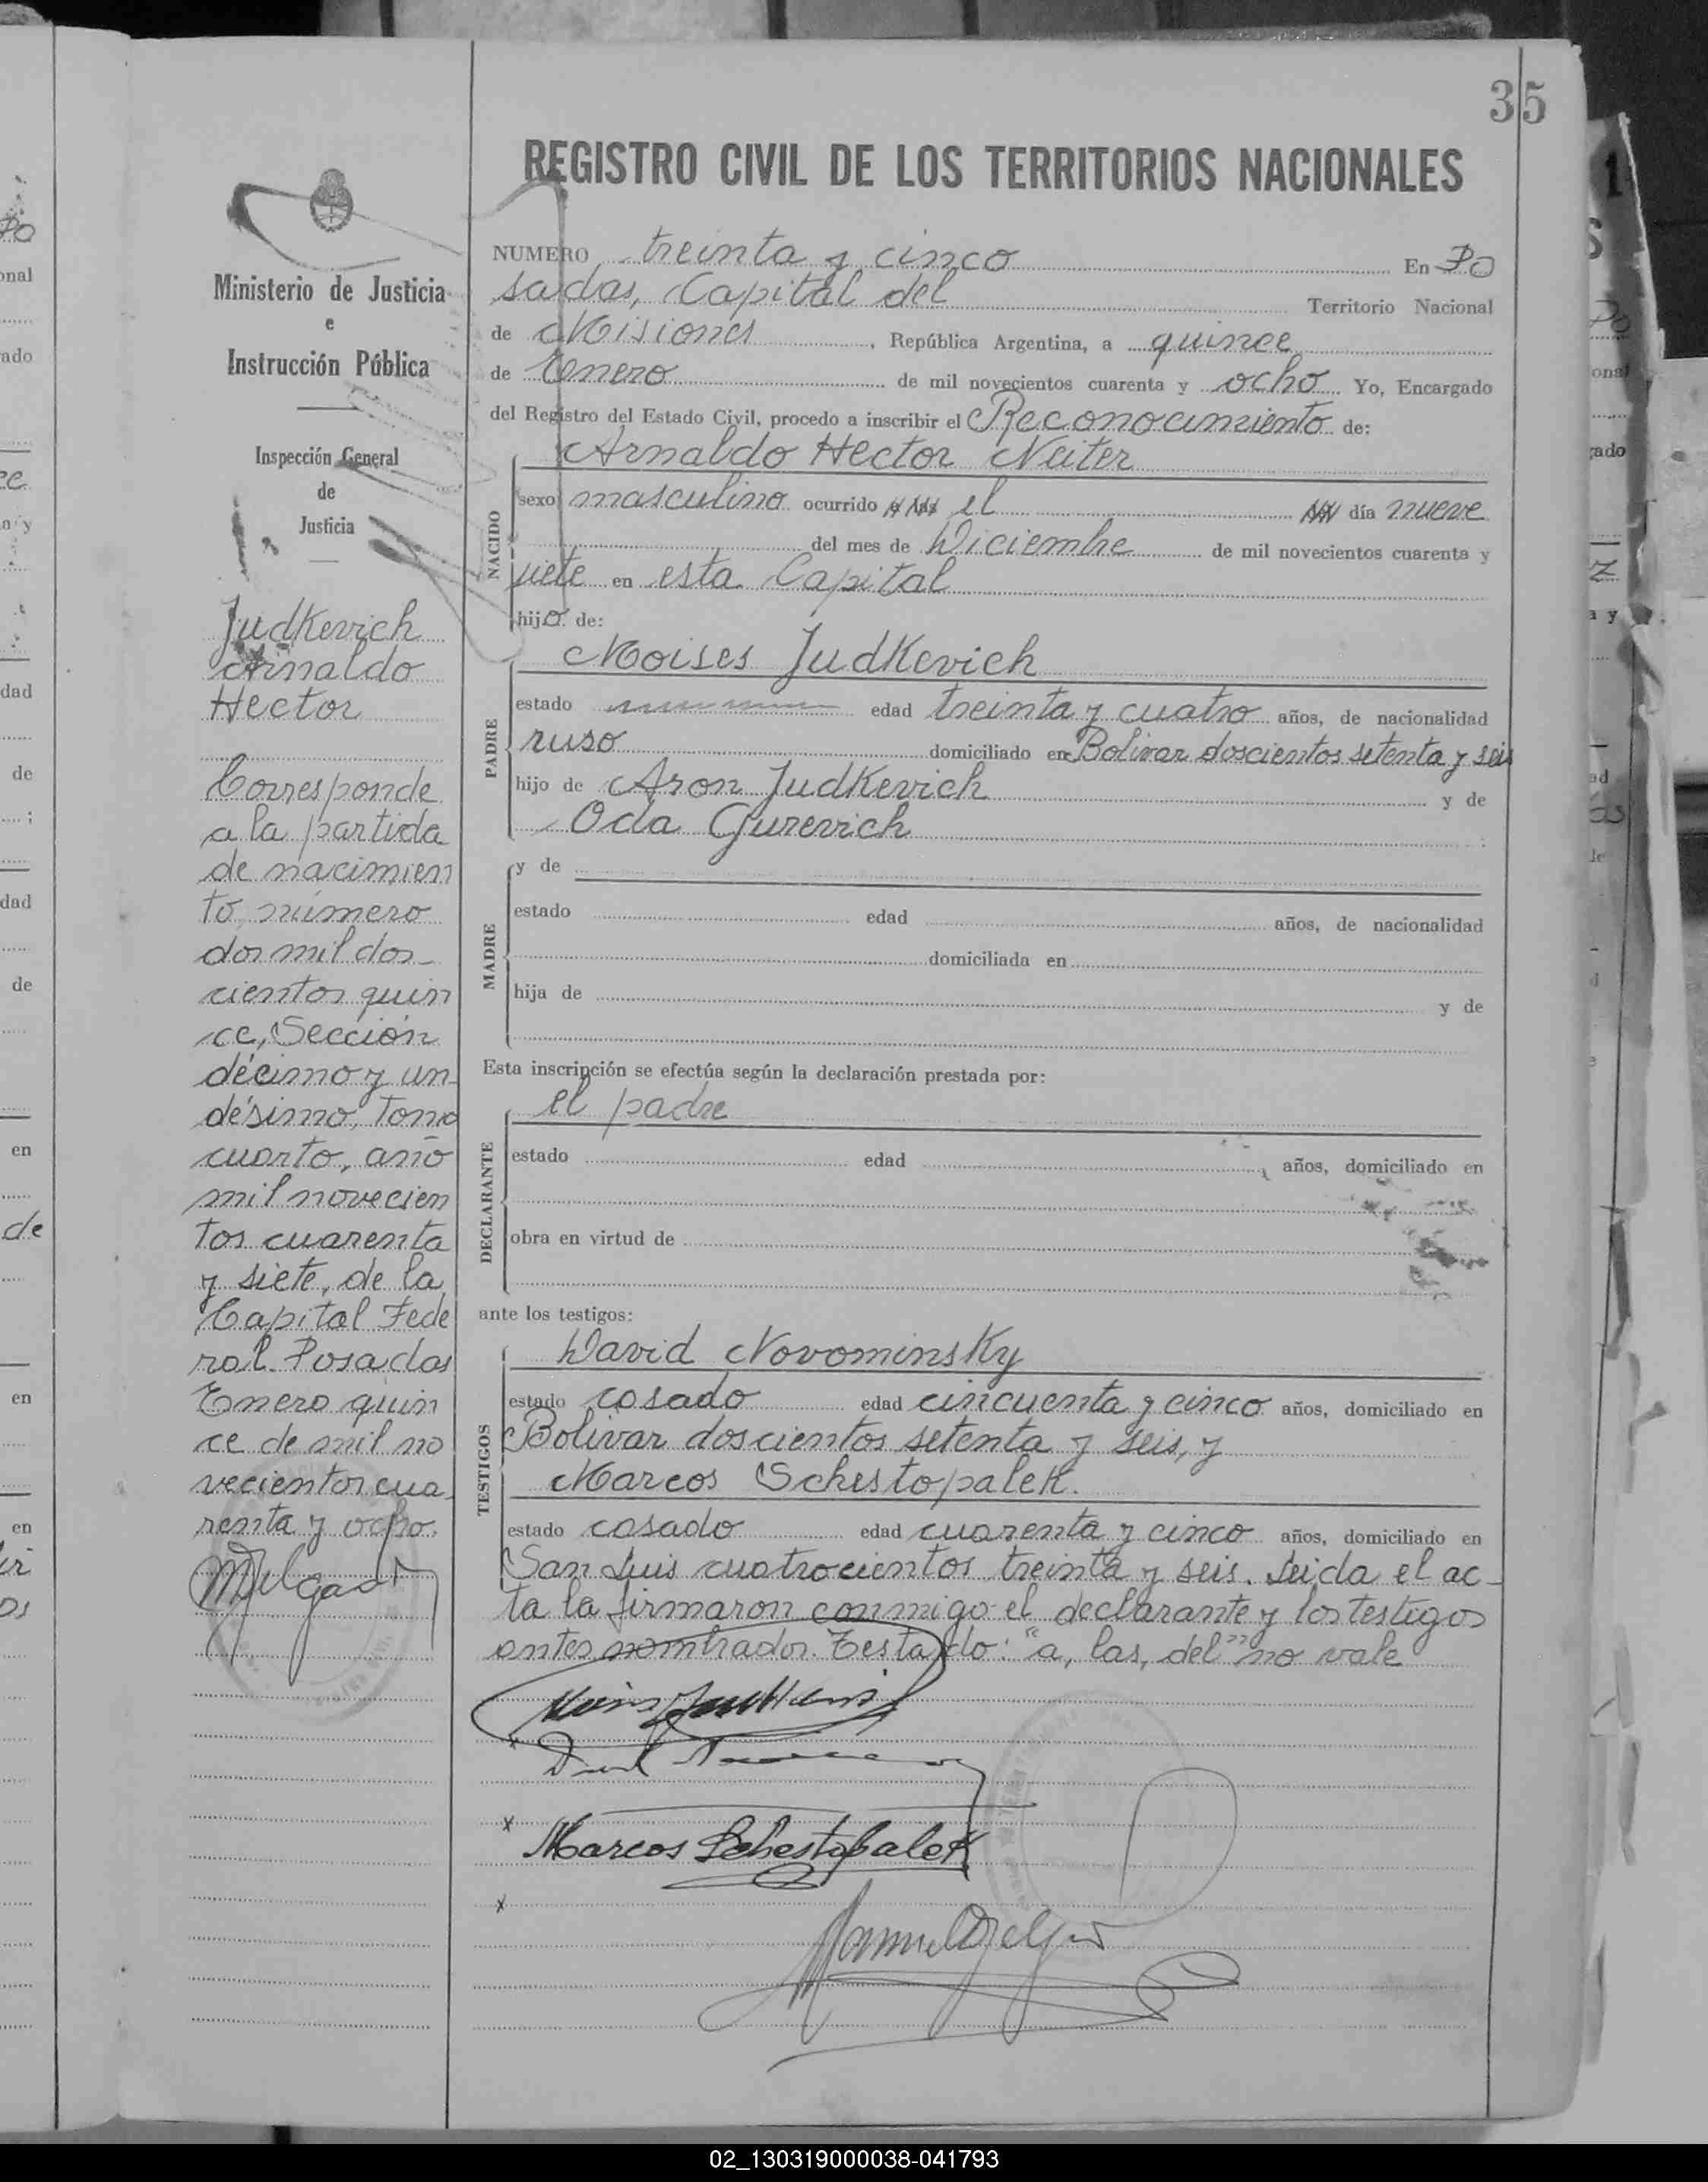 35
REGISTRO CIVIL DE LOS TERRITORIOS NACIONALES
Ministerio de Justicia
e
Instrucción Pública
Inspección General
de
Justicia
Judkevich
Arnaldo
Hector
Corresponde
a la partida
de nacimien
to, número
dos mil dos
cientos quin
ce, Sección
décimo y un
désimo, Tomo
cuarto, año
mil novecien
tos cuarenta
y siete, de la
Capital Fede
ral. Posadas
Enero quin
ce de mil no
vecientos cua
renta y ocho.
NUMERO treinta y cinco En Po
sadas, Capital del Territorio Nacional
de Misiones, República Argentina, a quince
de Enero de mil novecientos cuarenta y ocho Yo, Encargado
del Registro del Estado Civil, procedo a inscribir el Reconocimiento de:
Arnaldo Hector Neiter
NACIDO
sexo masculino ocurrido a las el del día nueve
del mes de Diciembre de mil novecientos cuarenta y
siete en esta Capital
hijo de:
Moises Judkevich
PADRE
estado edad treinta y cuatro años, de nacionalidad
ruso domiciliado en Bolivar doscientos setenta y seis
hijo de Aron Judkevich y de
Oda Gurevich
MADRE
y de
estado edad años, de nacionalidad
domiciliada en
hija de y de
Esta inscripción se efectúa según la declaración prestada por:
el padre
DECLARANTE
estado edad , años, domiciliado en
obra en virtud de
ante los testigos:
TESTIGOS
David Novominsky
estado casado edad cincuenta y cinco años, domiciliado en
Bolivar doscientos setenta y seis, y
Marcos Schestopalek.
estado casado edad cuarenta y cinco años, domiciliado en
San Luis cuatrocientos treinta y seis. Leida el ac-
ta la firmaron conmigo el declarante y los testigos
antes nombrados. Testado: "a, las, del" no vale
x
x Marcos Schestopalek
x
02_130319000038-041793